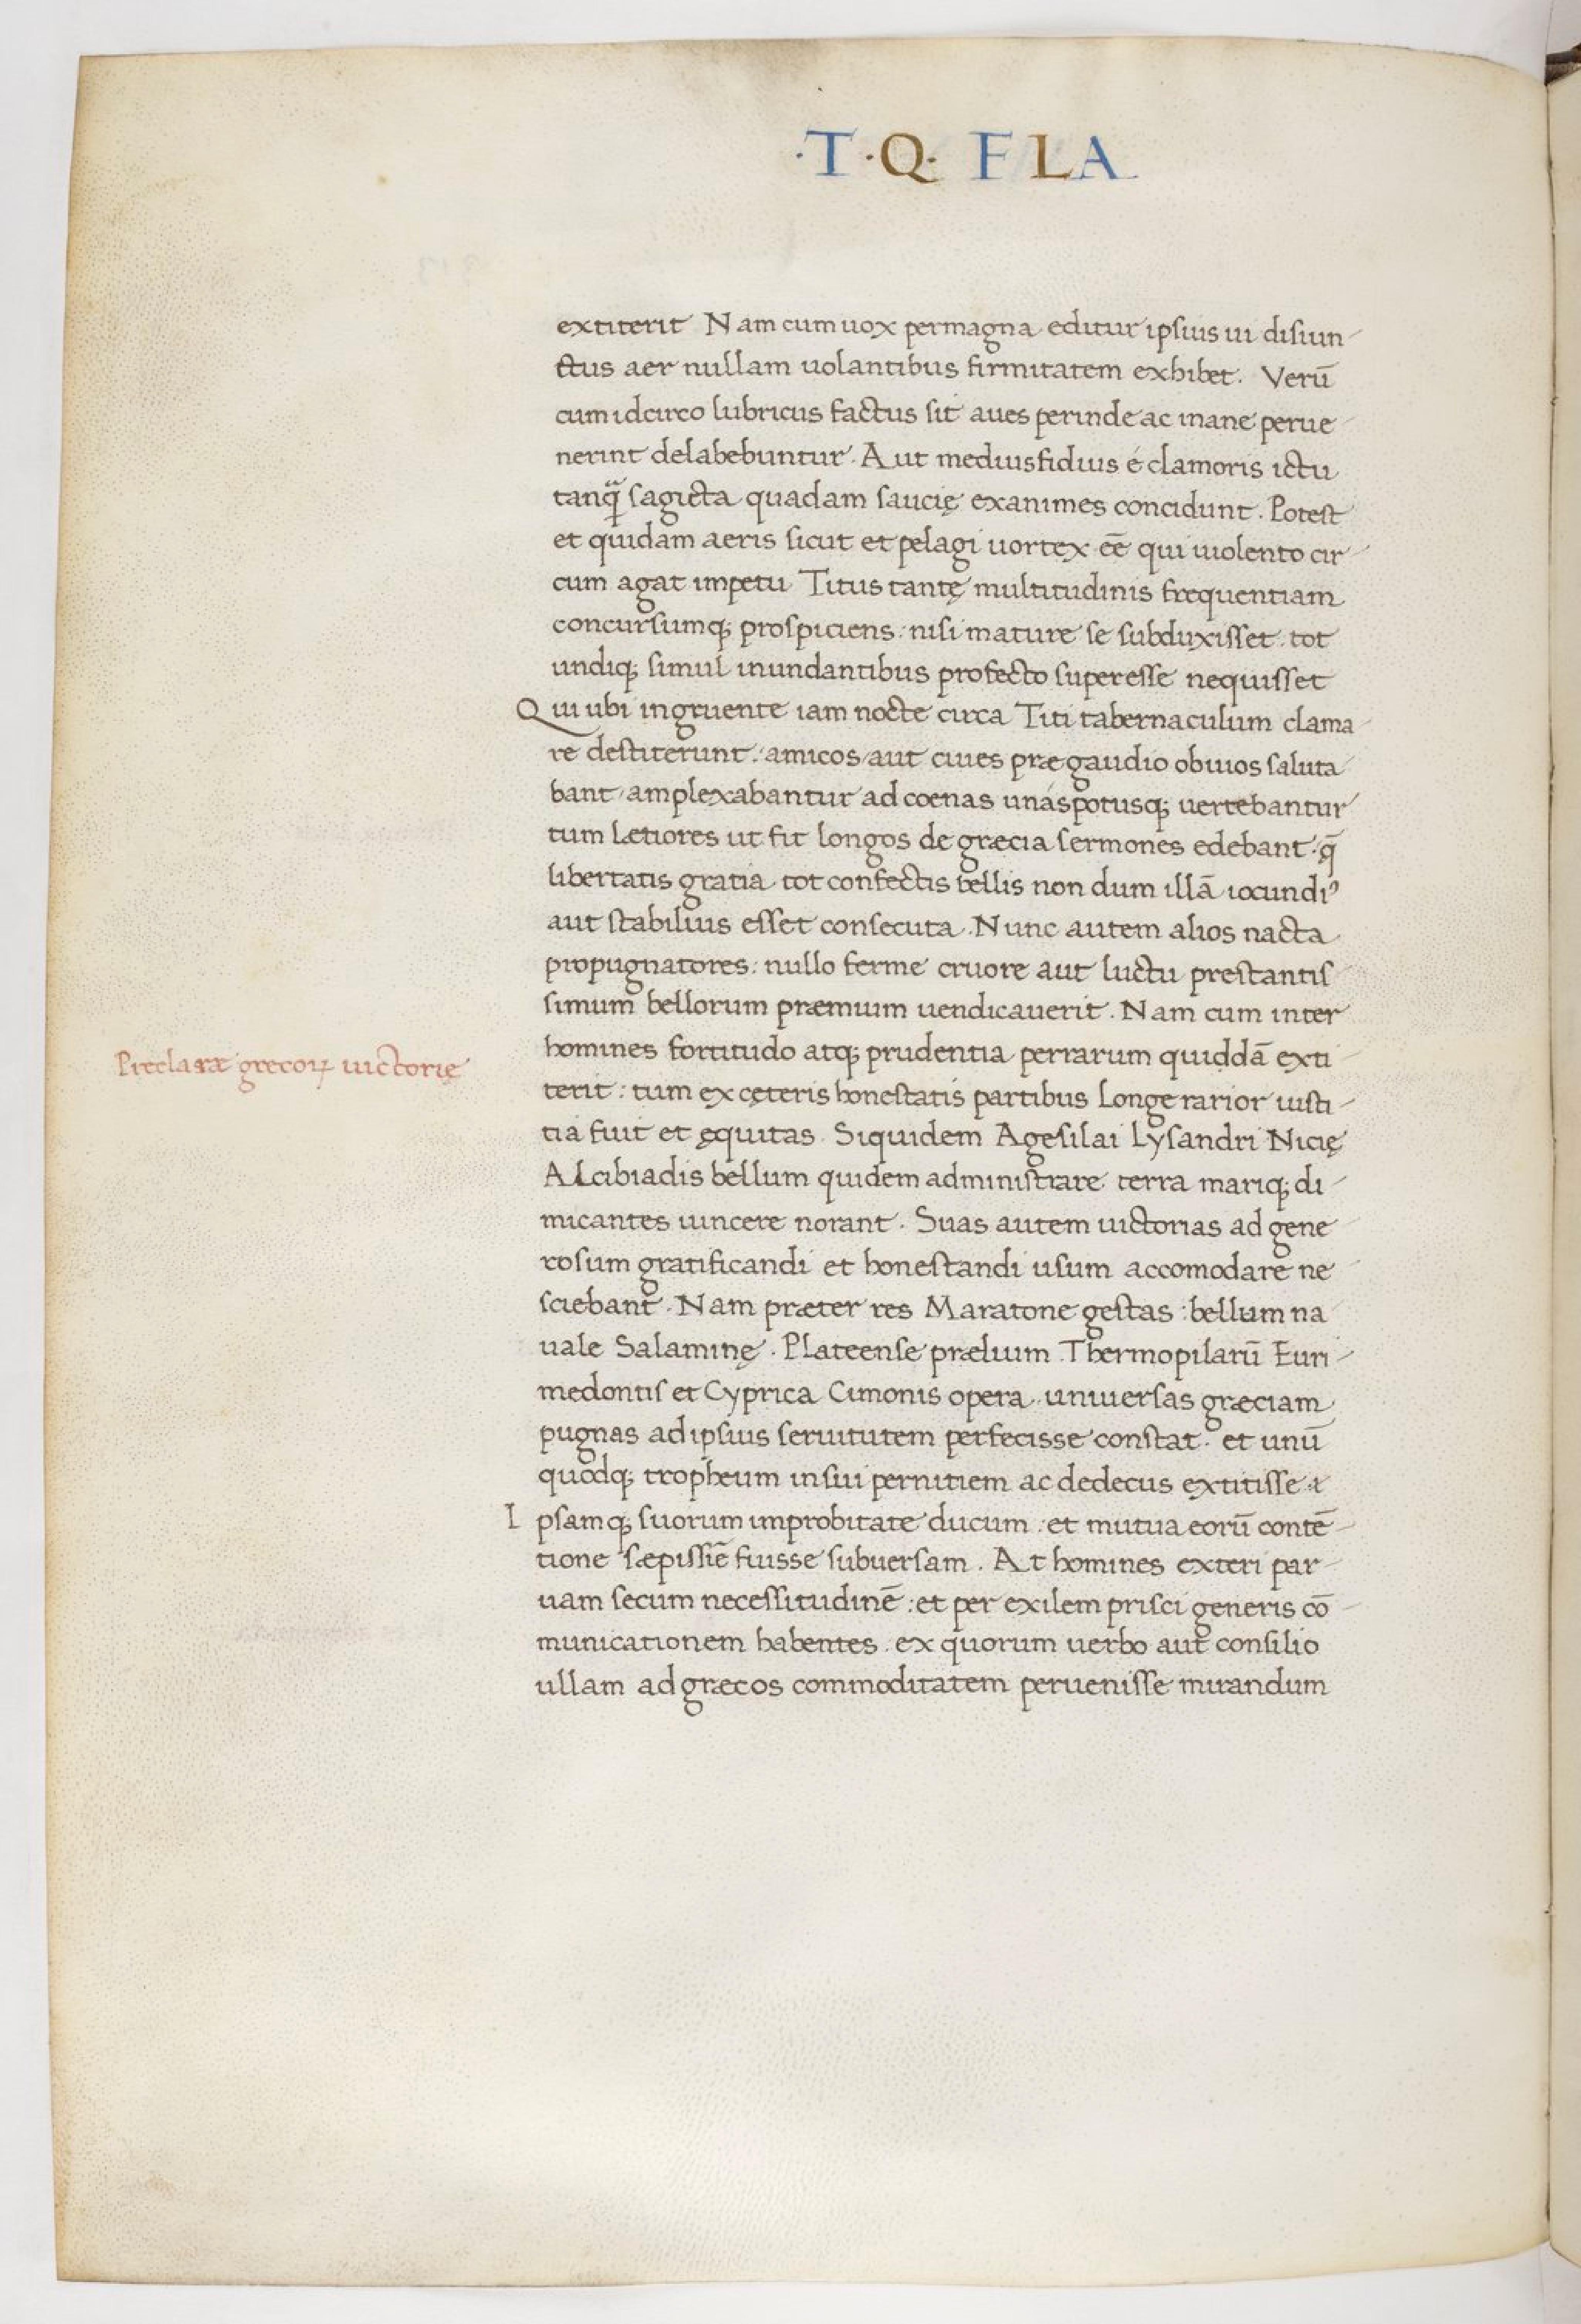 ·T·Q· FLA
extiterit Nam cum uox permagna editur ipsius ui disiun-
ctus aer nullam uolantibus firmitatem exhibet. Verū
cum idcirco lubricus factus sit aues perinde ac inane perue-
nerint delabebuntur. Aut mediusfidius é clamoris ictu
tanq̃ sagicta quadam saucię exanimes concidunt. Potest
et quidam aeris sicut et pelagi uortex eē qui uiolento cir-
cum agat impetu Titus tantę multitudinis frequentiam
concursumq; prospiciens: nisi mature se subduxisset. tot
undiq; simul inundantibus profecto superesse nequisset
Qui ubi ingruente iam nocte circa Titi tabernaculum clama-
re destiterunt: amicos aut ciues præ gaudio obuios saluta-
bant amplexabantur ad coenas unásPotusq; uertebantur
tum lætiores ut fit longos de græcia sermones edebant. q̄
libertatis gratia tot confectis bellis non dum illā iocundiꝰ
aut stabilius esset consecuta. Nunc autem alios nacta
propugnatores: nullo ferme cruore aut luctu prestantis-
simum bellorum præmium uendicauerit. Nam cum inter
homines fortitudo atq; prudentia perrarum quiddā exti-
Preclaræ grecoꝝ uictorię
terit: tum ex cęteris honestatis partibus longe rarior iusti-
tia fuit et ęquitas. Siquidem Agesilai Lysandri Nicię
Alcibiadis bellum quidem administrare terra mariq; di-
micantes uincere norant. Suas autem uictorias ad gene-
rosum gratificandi et honestandi usum accomodare ne-
sciebant. Nam præter res Maratone gestas: bellum na-
uale Salaminę. Plateense prælium Thermopilarū Euri-
medontis et Cyprica Cimonis opera. uniuersas græciam
pugnas ad ipsius seruitutem perfecisse constat. et unū
quodq; tropheum in sui pernitiem ac dedecus extitisse
Ipsamq; suorum improbitate ducum: et mutua eorū contē-
tione sæpissiē fuisse subuersam. At homines exteri par-
uam secum necessitudinē: et per exilem prisci generis cō-
municationem habentes. ex quorum uerbo aut consilio
ullam ad græcos commoditatem peruenisse mirandum